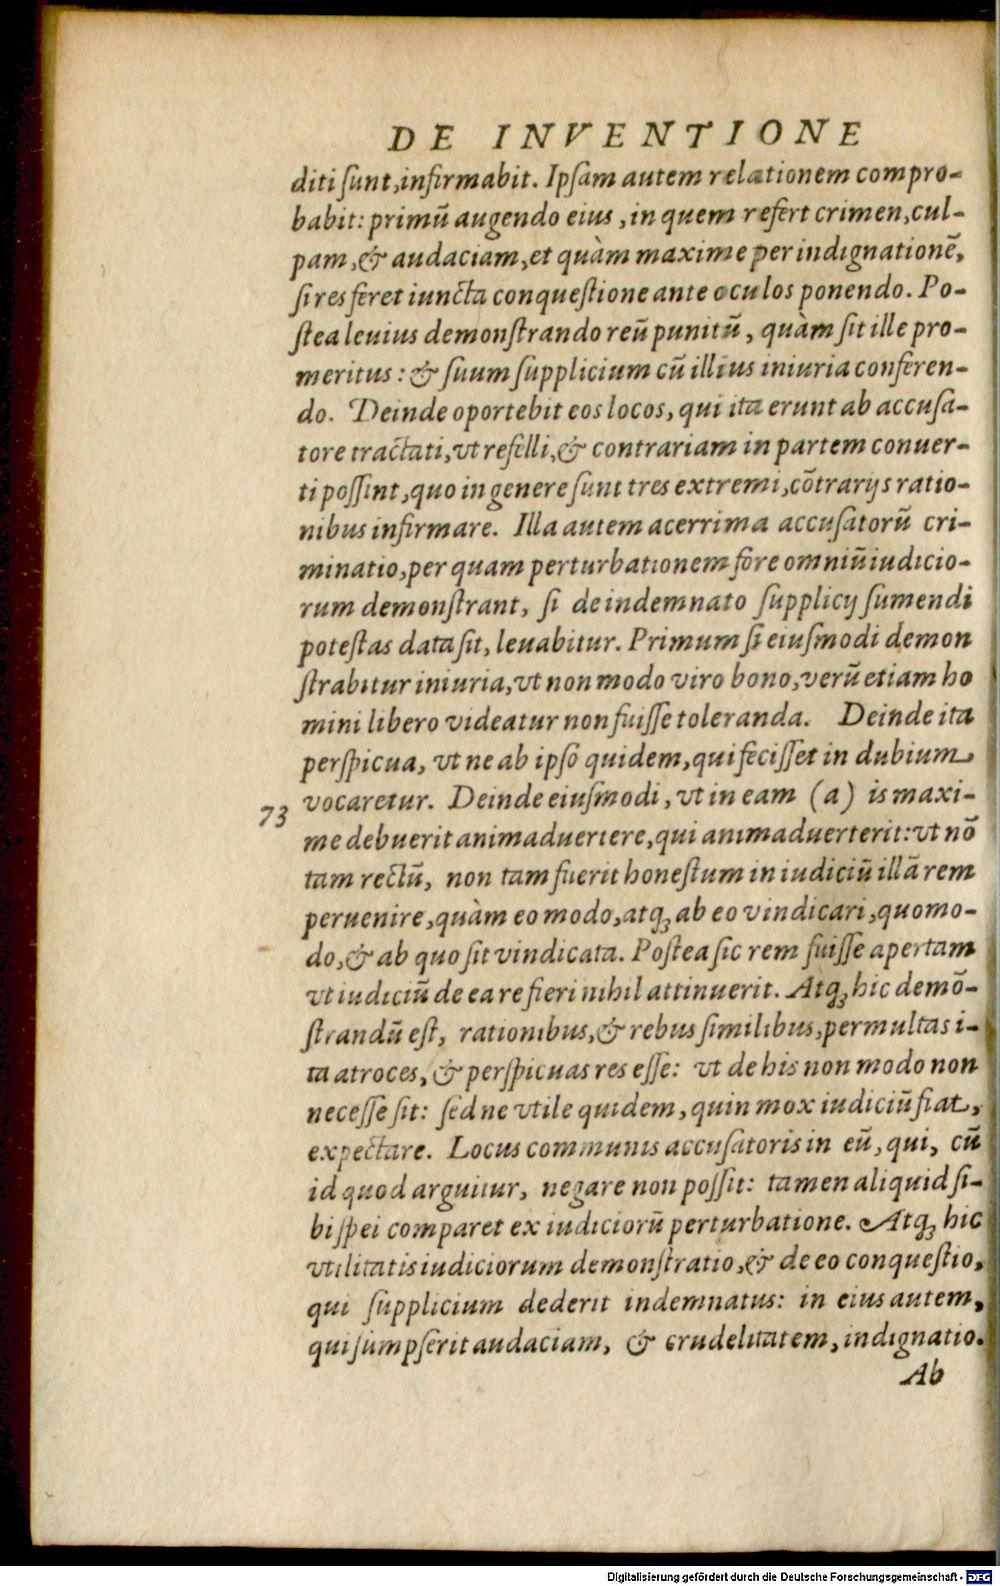 DE INVENTIONE
diti ſunt,infirmabit. Ipſam autem relationem compro-
babit: primũ augendo eius, in quem refert crimen, cul-
pam, & audaciam, et quàm maxime per indignationẽ,
ſi res feret iuncta conqueſtione ante oculos ponendo. Po-
ſtea leuius demonſtrando reũ punitũ, quàm ſit ille pro-
meritus: & ſuum ſupplicium cũ illius iniuria conferen-
do. Deinde oportebit eos locos, qui ita erunt ab accuſa-
tore tractati, vt refelli, & contrariam in partem conuer-
ti poſſint, quo in genere ſunt tres extremi, cõtrarijs ratio-
nibus infirmare. Illa autem acerrima accuſatorũ cri-
minatio, per quam perturbationem fore omniũ iudicio-
rum demonſtrant, ſi de indemnato ſupplicij ſumendi
poteſtas data ſit, leuabitur. Primum ſi eiuſmodi demon
ſtrabitur iniuria, vt non modo viro bono, verũ etiam ho
mini libero videatur non fuiſſe toleranda. Deinde ita
perſpicua, vt ne ab ipſo quidem, qui feciſſet in dubium
73 vocaretur. Deinde eiuſmodi, vt in eam (a) is maxi-
me debuerit animaduertere, qui animaduerterit: vt nõ
tam rectũ, non tam fuerit honeſtum in iudiciũ illã rem
peruenire, quàm eo modo, atq; ab eo vindicari, quomo-
do, & ab quo ſit vindicata. Poſtea ſic rem fuiſſe apertam
vt iudiciũ de ea re fieri nihil attinuerit. Atq; hic demõ-
ſtrandũ eſt, rationibus, & rebus ſimilibus, permultas i-
ta atroces, & perſpicuas res eſſe: vt de his non modo non
neceſſe ſit: ſed ne vtile quidem, quin mox iudiciũ fiat,
expectare. Locus communis accuſatoris in eũ, qui, cũ
id quod arguitur, negare non poſſit: tamen aliquid ſi-
bi ſpei comparet ex iudiciorũ perturbatione. Atq; hic
vtilitatis iudiciorum demonſtratio, & de eo conqueſtio,
qui ſupplicium dederit indemnatus: in eius autem,
qui ſumpſerit audaciam, & crudelitatem, indignatio.
Ab
Digitalisierung gefördert durch die Deutsche Forschungsgemeinschaft - DFG